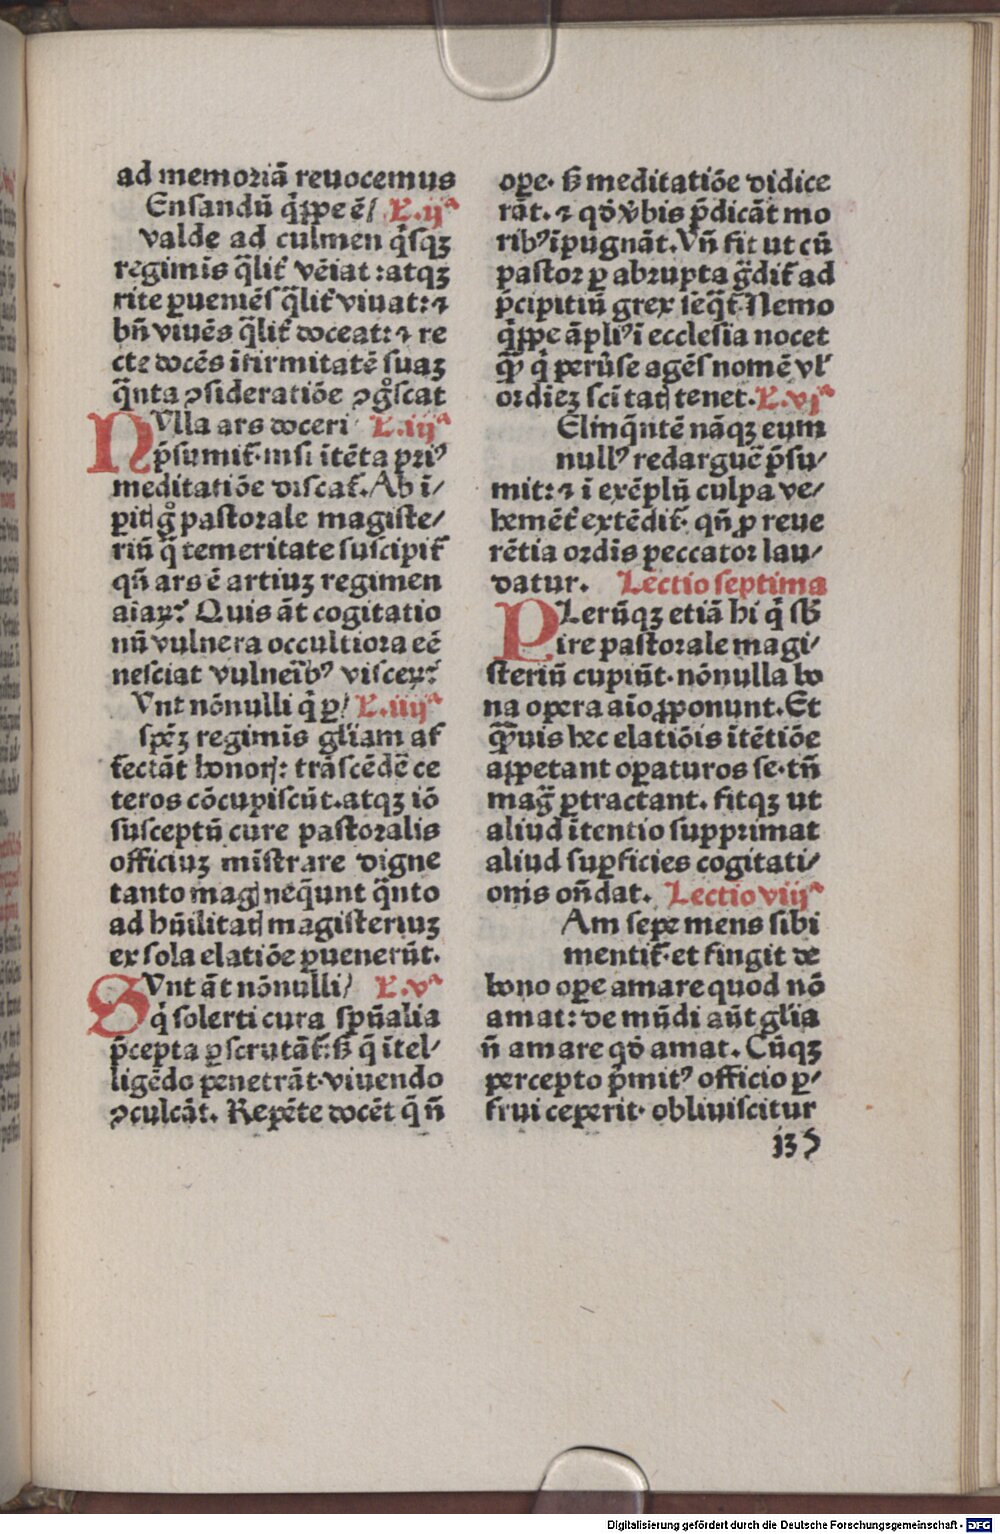 ad memoriā reuocemus
Ensandū q̄ꝓpe ē/ L.ijª
valde ad culmen q̄sqꝫ
regimīs q̄lit᷑ vēiat:atqꝫ
rite ꝑueniēs q̄lit᷑ viuat:⁊
bn̄ viuēs q̄lit᷑ doceat:⁊ re
cte docēs īfirmitatē suaꝫ
q̄nta ꝯsideratiōe ꝯgͦscat
NUlla ars doceri L.iijª
p̄sumit᷑.nisi ītēta pri⁹
meditatiōe discat᷑. Ab ī/
ꝑitꝭ gͦ pastorale magiste/
riū q̄ temeritate suscipit᷑
qn̄ ars ē artiuꝫ regimen
aīaꝝ? Quis āt cogitatio
nū vulnera occultiora eē
nesciat vulneīb⁹ visceꝝ?
Unt nōnulli q̄ ꝑ/ L.iiijª
spēꝫ regimīs gl̄iam af
fectāt honorꝭ: trāscēdē ce
teros cōcupiscūt.atqꝫ iō
susceptū cure pastoralis
officiuꝫ mīstrare digne
tanto magꝭ neq̄unt q̄nto
ad hūilitatꝭ magisteriuꝫ
ex sola elatiōe ꝑuenerūt.
SUnt āt nōnulli/ L.vª
q̄ solerti cura sp̄ūalia
p̄cepta ꝑscrutāt᷑:sꝫ q̄ ītel/
ligēdo penetrāt.viuendo
ꝯculcāt. Repēte docēt q̄ n̄
oꝑe. sꝫ meditatiōe didice
rāt. ⁊ qd̄ v̄bis p̄dicāt mo
rib⁹ īpugnāt. Un̄ fit ut cū
pastor ꝑ abrupta g̃dit᷑ ad
p̄cipitiū grex seq̄t᷑. Nemo
q̄ꝓpe āpli⁹ ī ecclesia nocet
qꝫ̄ q̄ peruse agēs nomē vl̓
ordieꝫ scītatꝭ tenet. L.vjª
Elinq̄ntē nāqꝫ eum
null⁹ redarguē p̄su/
mit:⁊ ī exēplū culpa ve/
hemēt᷑ extēdit᷑. qn̄ ꝓ reue
rētia ordīs peccator lau/
datur. Lectio septima
PLerūqꝫ etiā hi q̄ sb̄
ire pastorale magi/
steriū cupiūt.nōnulla bo
na opera aīo ꝓponunt. Et
qꝫ̄uis hec elatiōis ītētiōe
aꝓpetant oꝑaturos se.tn̄
mag̃ ꝑtractant. fitqꝫ ut
aliud ītentio supprimat
aliud suꝑficies cogitati/
onis on̄dat. Lectio viijª
Am sepe mens sibi
mentit᷑.et fingit de
bono oꝑe amare quod nō
amat:de mūdi aūt gl̄ia
n̄ amare qd̄ amat. Cūqꝫ
percepto p̄mit⁹ officio ꝑ/
frui ceperit. obliuiscitur
135
Digitalisierung gefördert durch die Deutsche Forschungsgemeinschaft - DFG